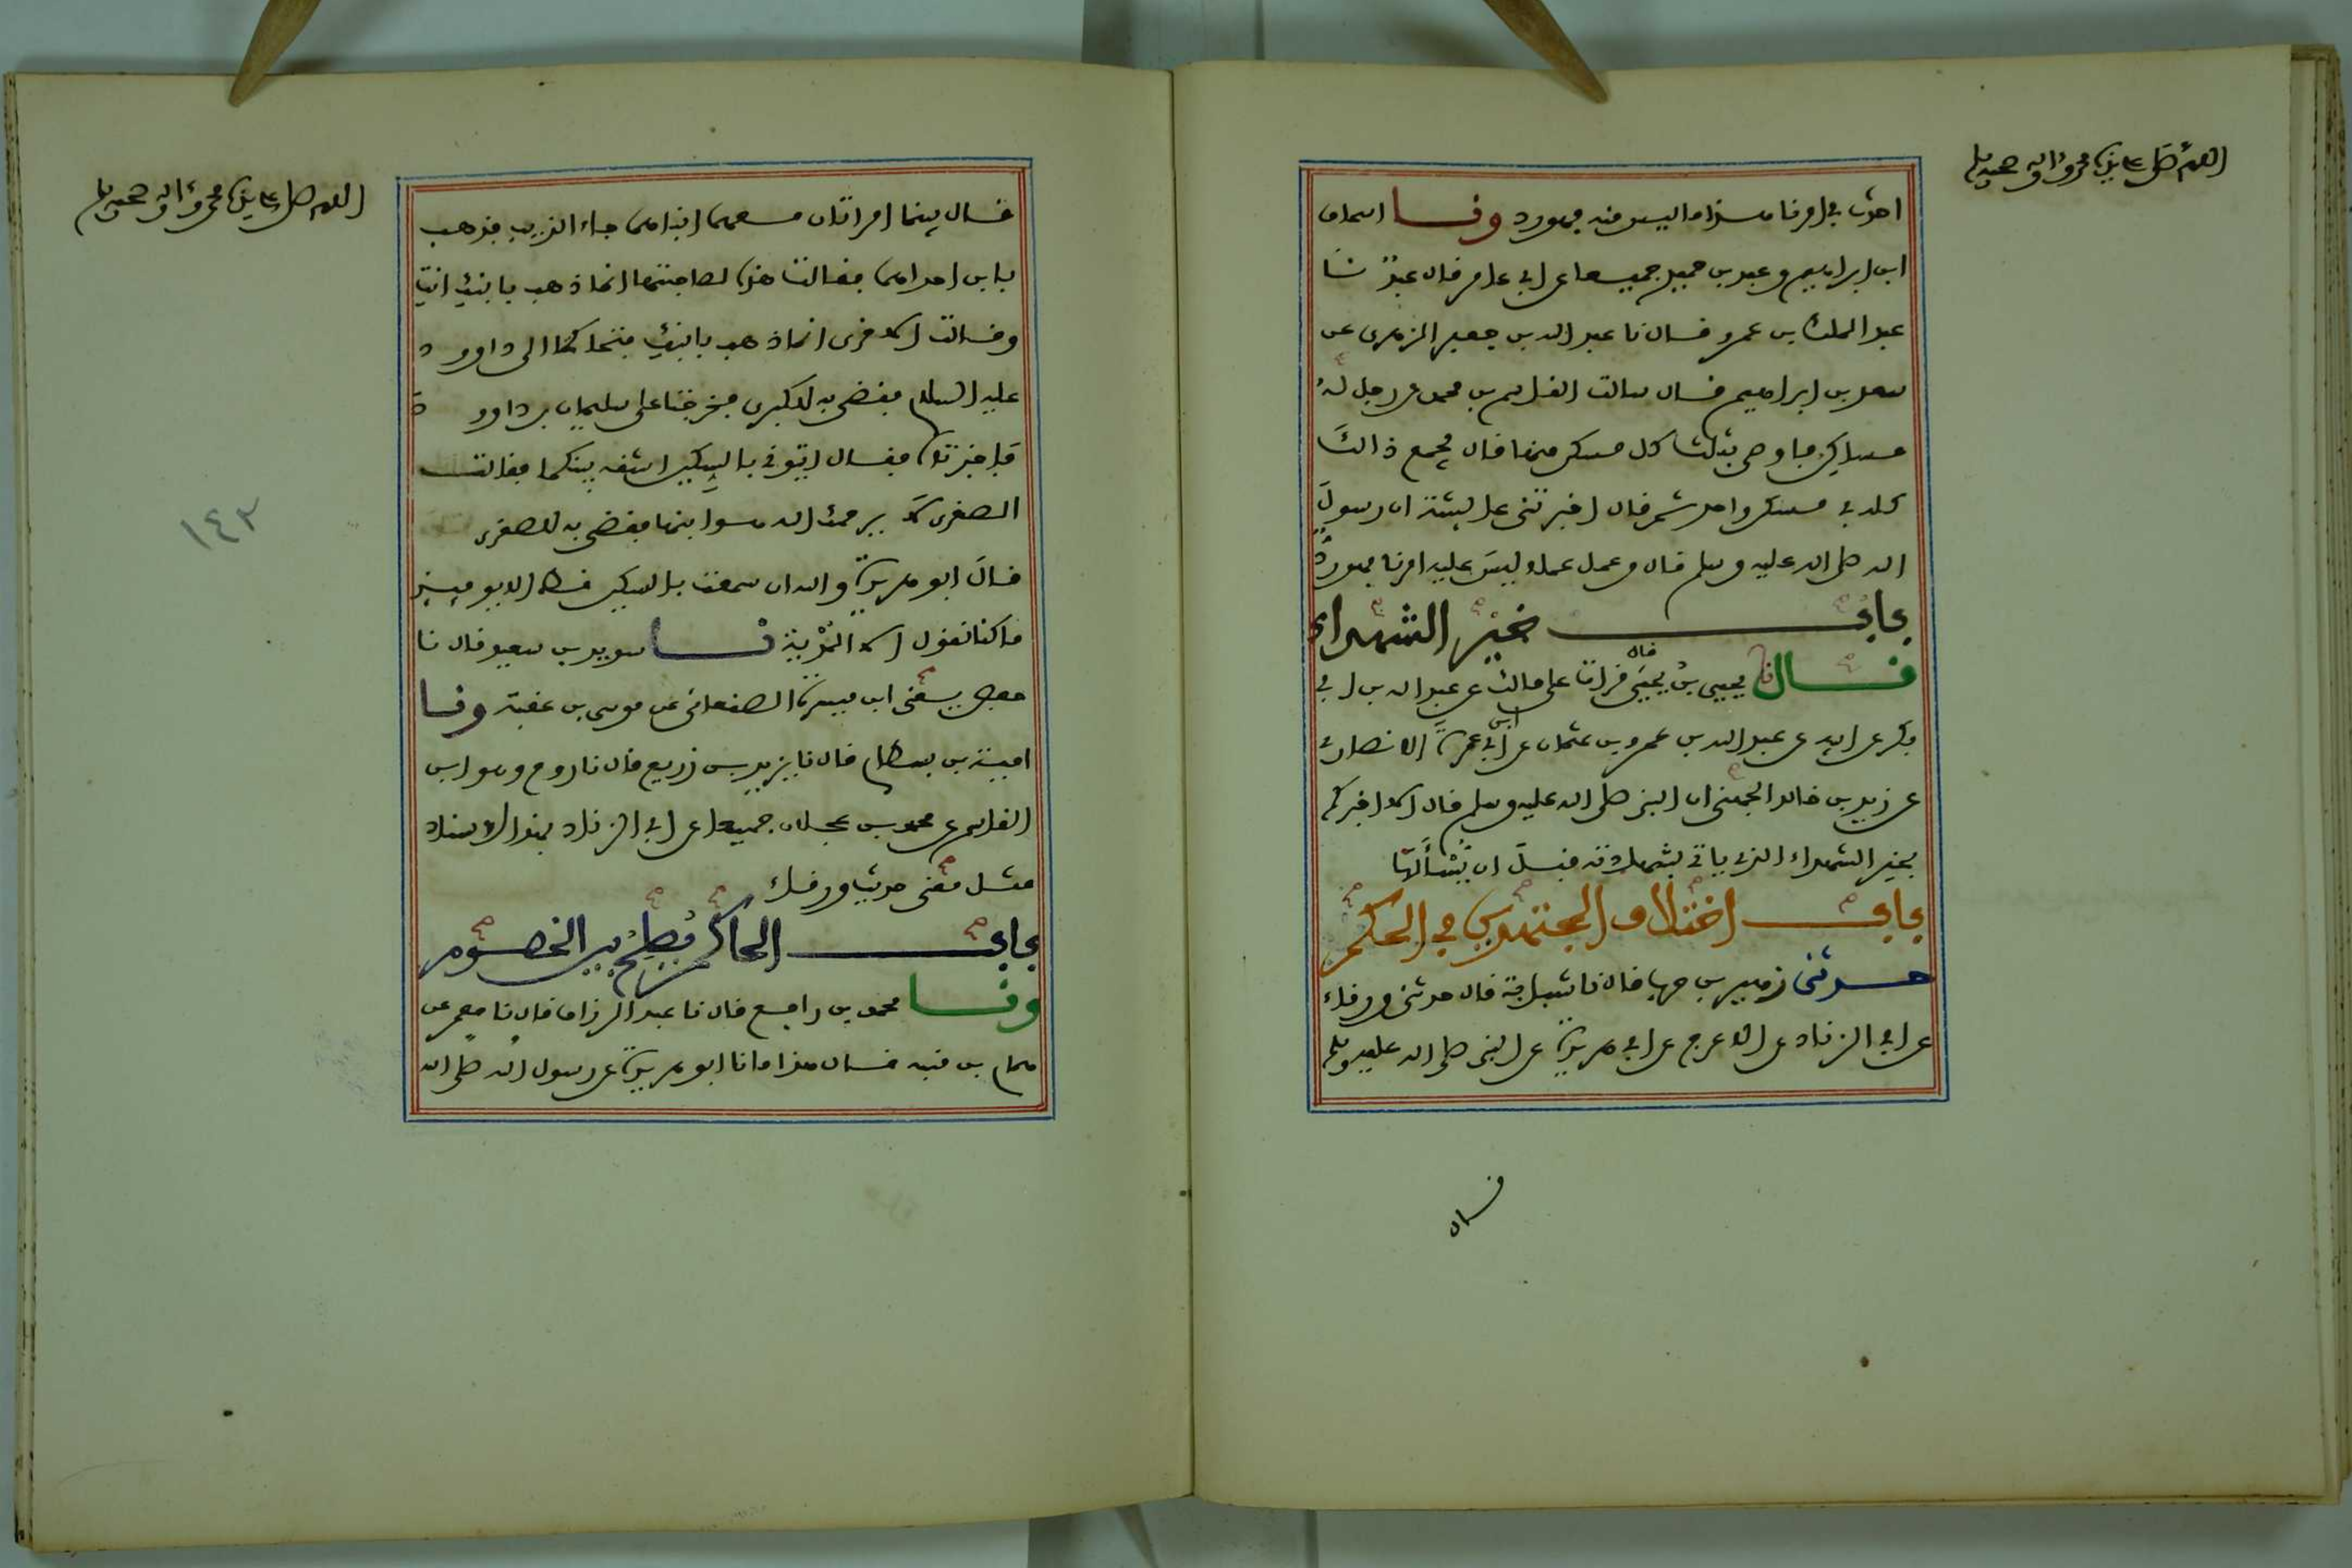 اللهم صل على سيدنا محمد وءاله وصحبه وسلم
احدث في امرنا هذا ما ليس منه فهو رد ونا اسحاق
ابن ابراهيم وعبد بن حميد جميعا عن ابي عامر قال عبد نا
عبد الملك بن عمرو قال نا عبد الله بن جعفر الزهري عن
سعد بن ابراهيم قال سالت القاسم بن محمد عن رجل له
مساكن فاوصى بثلث كل مسكن منها قال يجمع ذالك
كله في مسكن واحد ثم قال اخبرتني عايشة ان رسول
الله صلى الله عليه وسلم قال من عمل عملا ليس عليه امرنا فهو رد
باب خير الشهداء
قال نا يحيى بن يحيى قال قرات على مالك عن عبد الله بن ابي
بكر عن ابيه عن عبد الله بن عمرو بن عثمان عن ابن ابي عمرة الانصاري
عن زيد بن خالد الجهني ان النبي صلى الله عليه وسلم قال الا اخبركم
بخير الشهداء الذي ياتي بشهادته قبل ان يُسْأَلَهَا
باب اختلاف المجتهدين في الحكم
حدثني زهير بن حرب قال نا شبابة قال حدثني ورقاء
عن ابي الزناد عن الاعرج عن ابي هريرة عن النبي صلى الله عليه وسلم
قال
اللهم صل على سيدنا محمد وءاله وصحبه وسلم
قال بينما امراتان معهما ابناهما جاء الذيب فذهب
بابن احداهما فقالت هذه لصاحبتها انما ذهب بابنك انت
وقالت الاخرى انما ذهب بابنك فتحاكمتا الى داوود
عليه السلام فقضى به للكبرى فخرجتا على سليمان بن داوود
فاخبرتاه فقال ايتوني بالسكين اشقه بينكما فقالت
الصغرى لا يرحمك الله هو ابنها فقضى به للصغرى
قال ابو هريرة والله ان سمعت بالسكين قط الا يوميذ
ما كنا نقول الا المُدْيَة نا سويد بن سعيد قال نا
حفص يعني ابن ميسرة الصنعاني عن موسى بن عقبة ونا
امية بن بسطام قال نا يزيد بن زريع قال نا روح وهو ابن
القاسم عن محمد بن عجلان جميعا عن ابي الزناد بهذا الاسناد
مثل معنى حديث ورقاء
باب الحاكم يُصلح بين الخصوم
ونا محمد بن رافع قال نا عبد الرزاق قال نا معمر عن
همام بن منبه قال هذا ما نا ابو هريرة عن رسول الله صلى الله
١٤٢